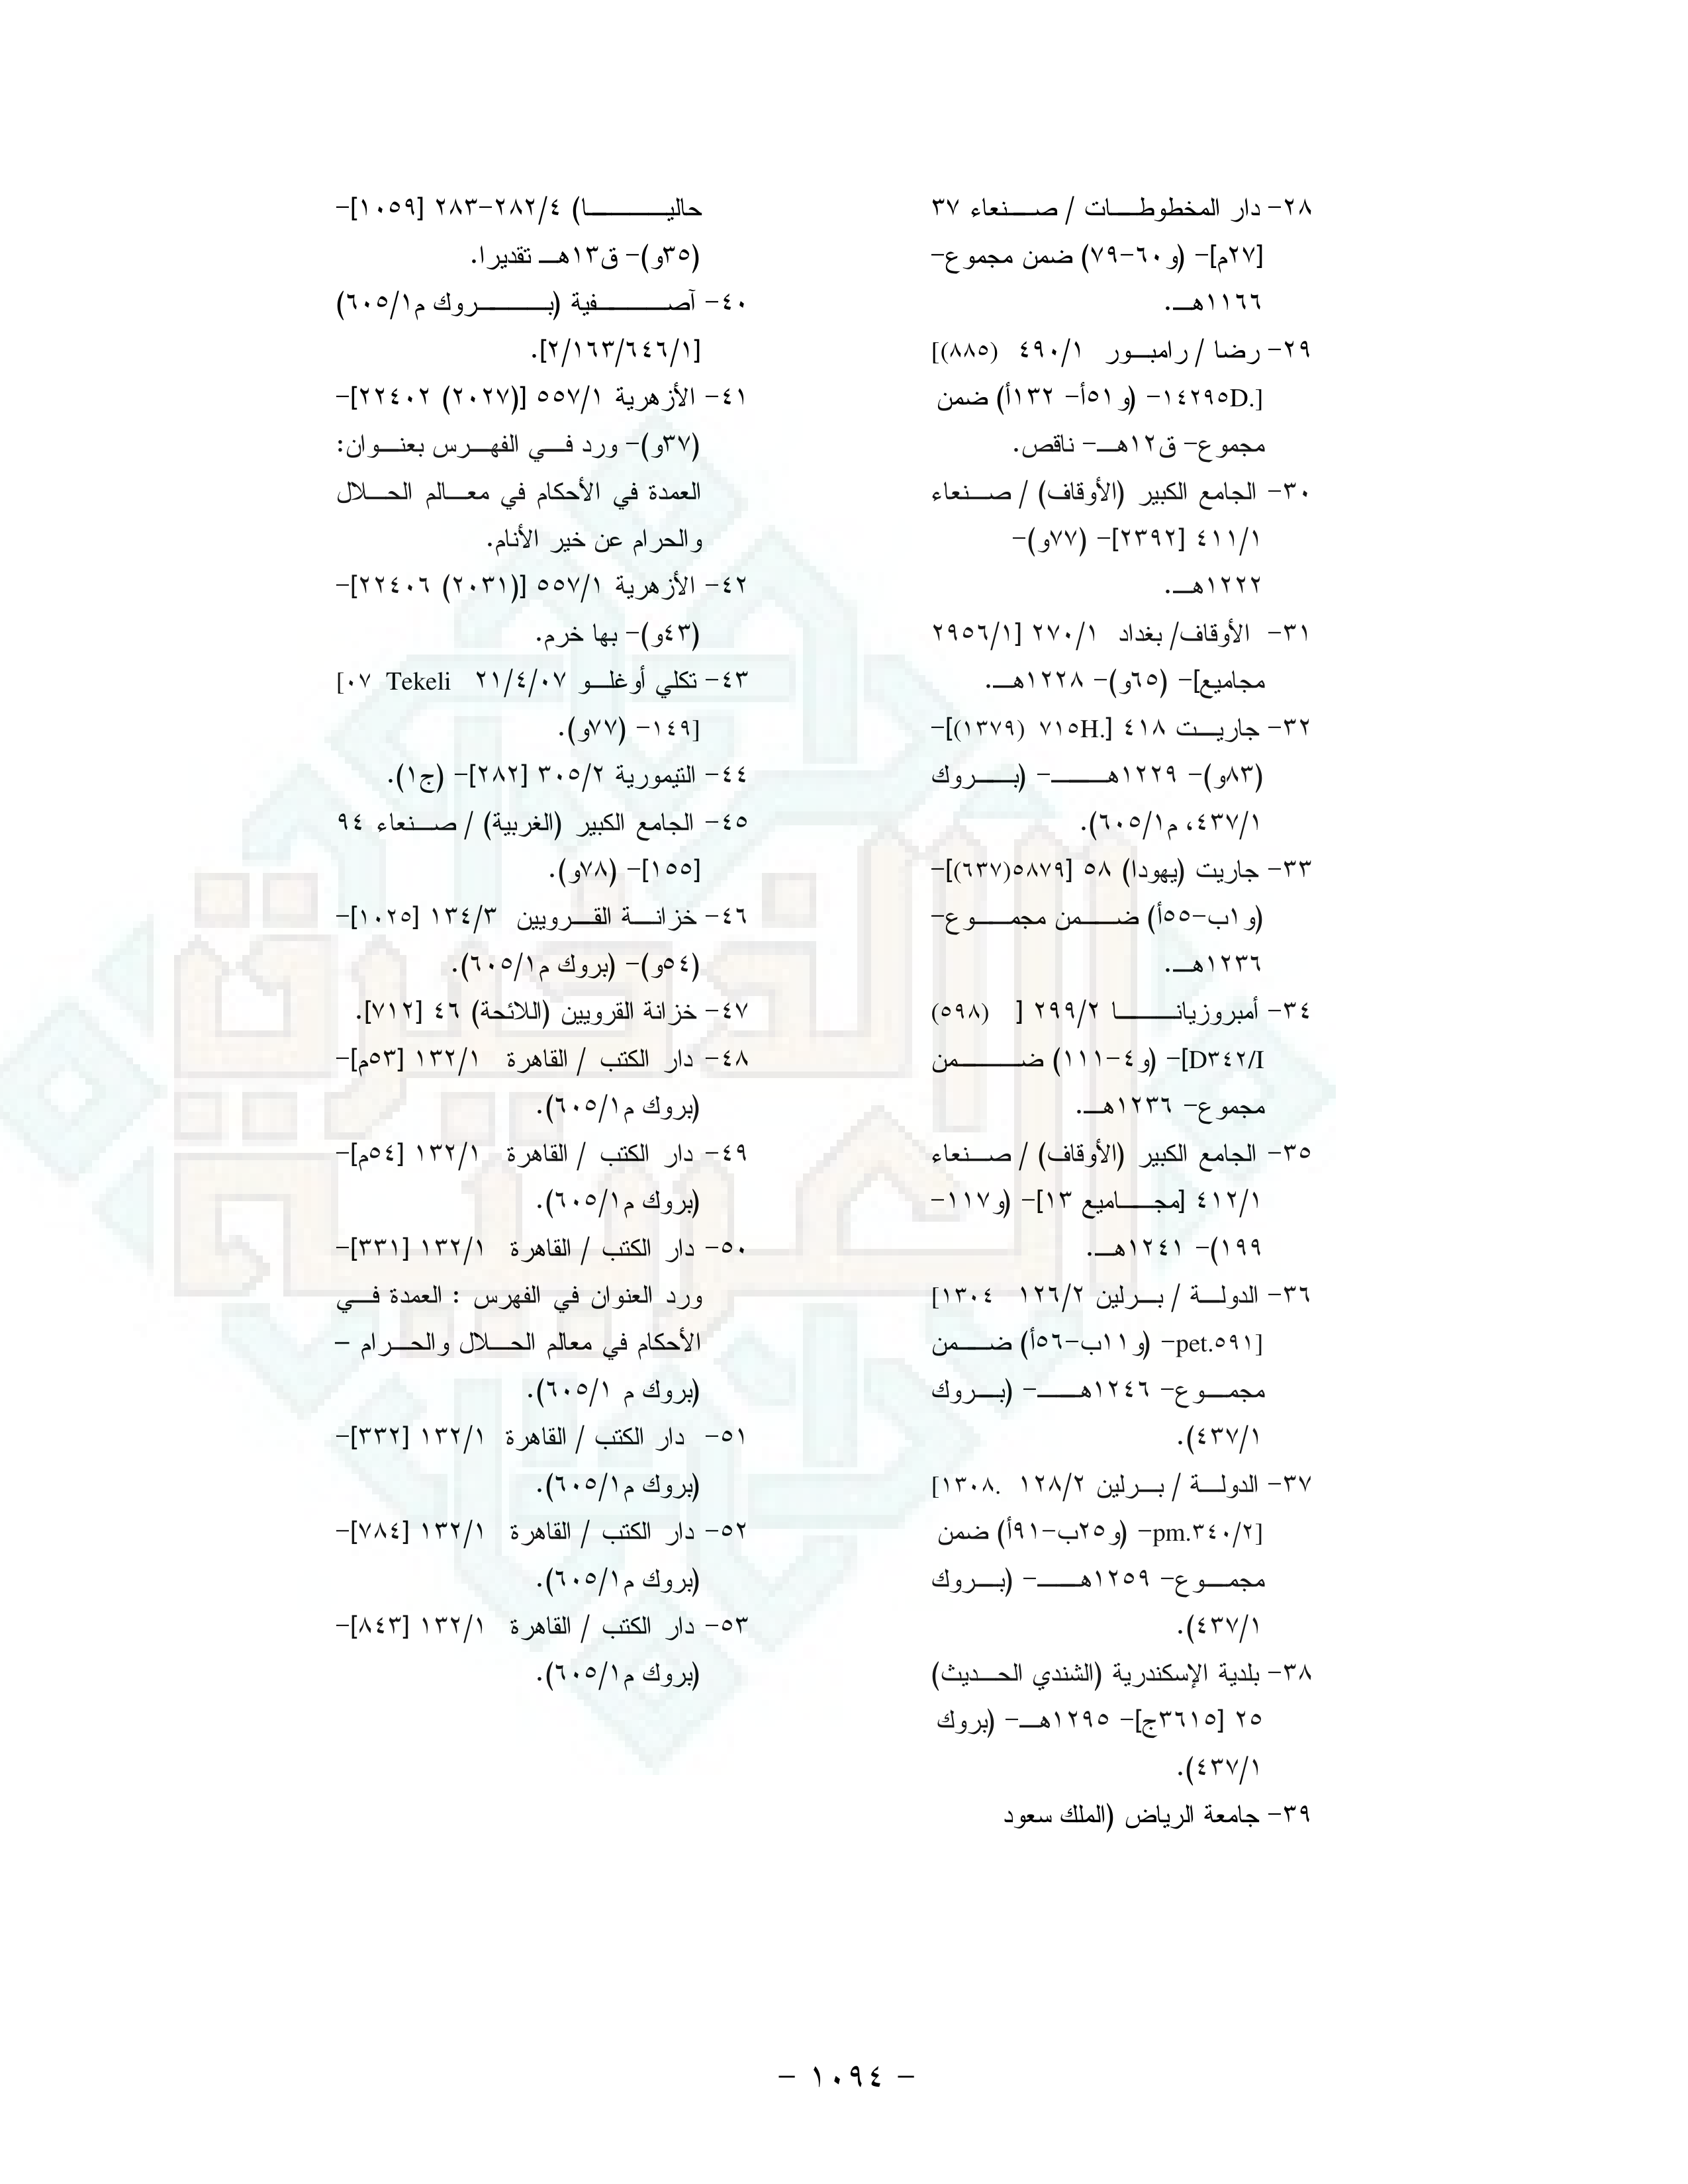 ٢٨- دار المخطوطات / صنعاء ٣٧
[٢٧م]- (و٦٠-٧٩) ضمن مجموع-
١١٦٦هـ.
٢٩- رضا / رامبور ٤٩٠/١ (٨٨٥)]
[.١٤٢٩٥D- (و٥١أ- ١٣٢أ) ضمن
مجموع- ق١٢هـ- ناقص.
٣٠- الجامع الكبير (الأوقاف) / صنعاء
٤١١/١ [٢٣٩٢]- (٧٧و)-
١٢٢٢هـ.
٣١- الأوقاف/ بغداد ٢٧٠/١ [٢٩٥٦/١
مجاميع]- (٦٥و)- ١٢٢٨هـ.
٣٢- جاريت ٤١٨ [.٧١٥H (١٣٧٩)]-
(٨٣و)- ١٢٢٩هـ- (بروك
٤٣٧/١، م٦٠٥/١).
٣٣- جاريت (يهودا) ٥٨ [٥٨٧٩(٦٣٧)]-
(و١ب-٥٥أ) ضمن مجموع-
١٢٣٦هـ.
٣٤- أمبروزيانا ٢٩٩/٢ [ (٥٩٨)
D٣٤٢/I]- (و٤-١١١) ضمن
مجموع- ١٢٣٦هـ.
٣٥- الجامع الكبير (الأوقاف) / صنعاء
٤١٢/١ [مجاميع ١٣]- (و١١٧-
١٩٩)- ١٢٤١هـ.
٣٦- الدولة / برلين ١٢٦/٢ ١٣٠٤]
[pet.٥٩١- (و١١ب-٥٦أ) ضمن
مجموع- ١٢٤٦هـ- (بروك
٤٣٧/١).
٣٧- الدولة / برلين ١٢٨/٢ .١٣٠٨]
[pm.٣٤٠/٢- (و٢٥ب-٩١أ) ضمن
مجموع- ١٢٥٩هـ- (بروك
٤٣٧/١).
٣٨- بلدية الإسكندرية (الشندي الحديث)
٢٥ [٣٦١٥ج]- ١٢٩٥هـ- (بروك
٤٣٧/١).
٣٩- جامعة الرياض (الملك سعود
حاليا) ٢٨٢/٤-٢٨٣ [١٠٥٩]-
(٣٥و)- ق١٣هـ تقديرا.
٤٠- آصفية (بروك م٦٠٥/١)
[٢/١٦٣/٦٤٦/١].
٤١- الأزهرية ٥٥٧/١ [(٢٠٢٧) ٢٢٤٠٢]-
(٣٧و)- ورد في الفهرس بعنوان:
العمدة في الأحكام في معالم الحلال
والحرام عن خير الأنام.
٤٢- الأزهرية ٥٥٧/١ [(٢٠٣١) ٢٢٤٠٦]-
(٤٣و)- بها خرم.
٤٣- تكلي أوغلو ٢١/٤/٠٧ Tekeli ٠٧]
[١٤٩- (٧٧و).
٤٤- التيمورية ٣٠٥/٢ [٢٨٢]- (ج١).
٤٥- الجامع الكبير (الغربية) / صنعاء ٩٤
[١٥٥]- (٧٨و).
٤٦- خزانة القرويين ١٣٤/٣ [١٠٢٥]-
(٥٤و)- (بروك م٦٠٥/١).
٤٧- خزانة القرويين (اللائحة) ٤٦ [٧١٢].
٤٨- دار الكتب / القاهرة ١٣٢/١ [٥٣م]-
(بروك م٦٠٥/١).
٤٩- دار الكتب / القاهرة ١٣٢/١ [٥٤م]-
(بروك م٦٠٥/١).
٥٠- دار الكتب / القاهرة ١٣٢/١ [٣٣١]-
ورد العنوان في الفهرس : العمدة في
الأحكام في معالم الحلال والحرام –
(بروك م ٦٠٥/١).
٥١- دار الكتب / القاهرة ١٣٢/١ [٣٣٢]-
(بروك م٦٠٥/١).
٥٢- دار الكتب / القاهرة ١٣٢/١ [٧٨٤]-
(بروك م٦٠٥/١).
٥٣- دار الكتب / القاهرة ١٣٢/١ [٨٤٣]-
(بروك م٦٠٥/١).
- ١٠٩٤ -